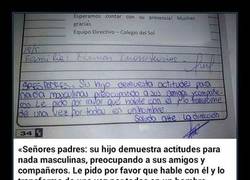 Esperamos contar con su presencia! Muchas
gracias.
Equipo Directivo – Colegio del Sol
SRES PADRES: SU hijo demuestra actitudes para
nada masculinas preocupando a sus amigos y compañe-
ros. Le pido por favor que hable con él y lo transforme
de una vez por todas en un hombre.
Saluda atte La dirección
34
«Señores padres: su hijo demuestra actitudes para
nada masculinas, preocupando a sus amigos y
compañeros. Le pido por favor que hable con él y lo